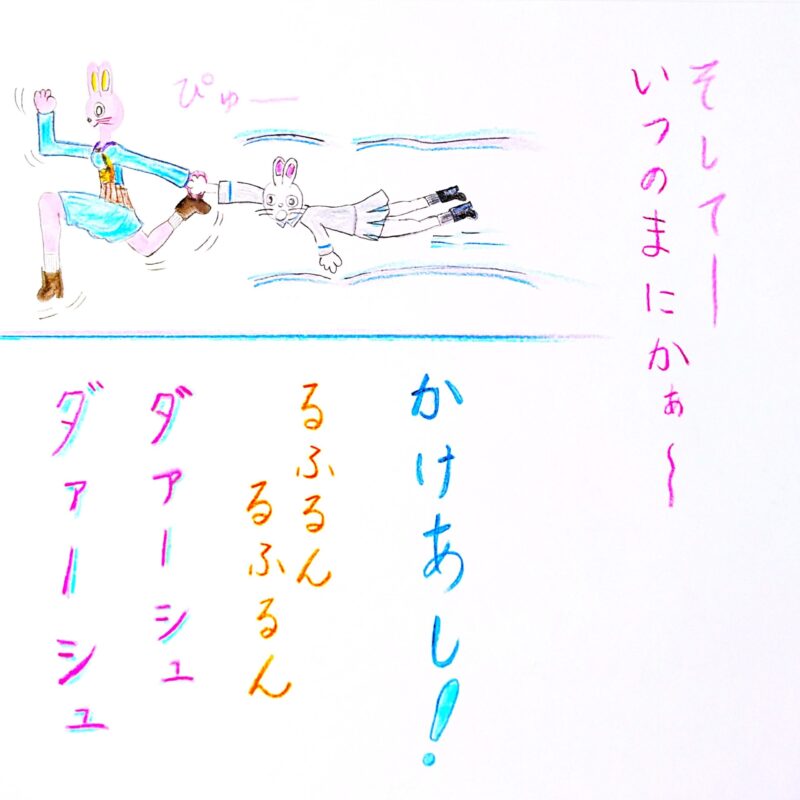 そしてー
いつのまにかぁ〜
ぴゅー
かけあし!
るふるん
るふるん
ダァーシュ
ダァーシュ